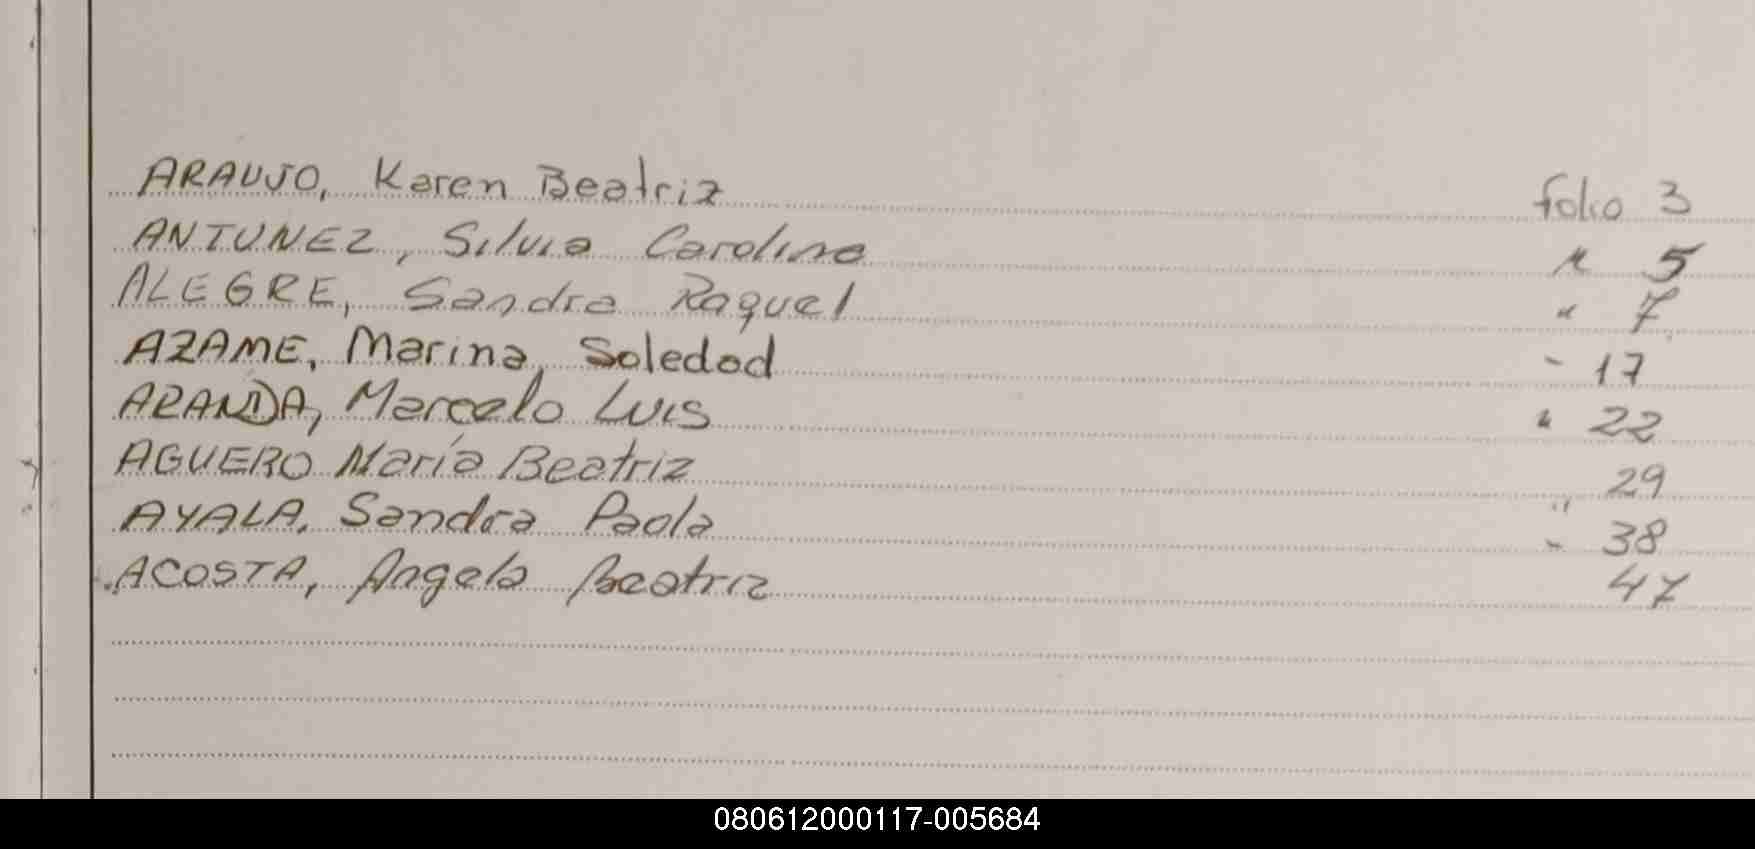 ARAUJO, Karen Beatriz folio 3
ANTUNEZ, Silvia Carolina " 5
ALEGRE, Sandra Raquel " 7
AZAME, Marina Soledad " 17
ARANDA, Marcelo Luis " 22
AGUERO María Beatriz " 29
AYALA, Sandra Paola " 38
ACOSTA, Angela Beatriz 47
080612000117-005684